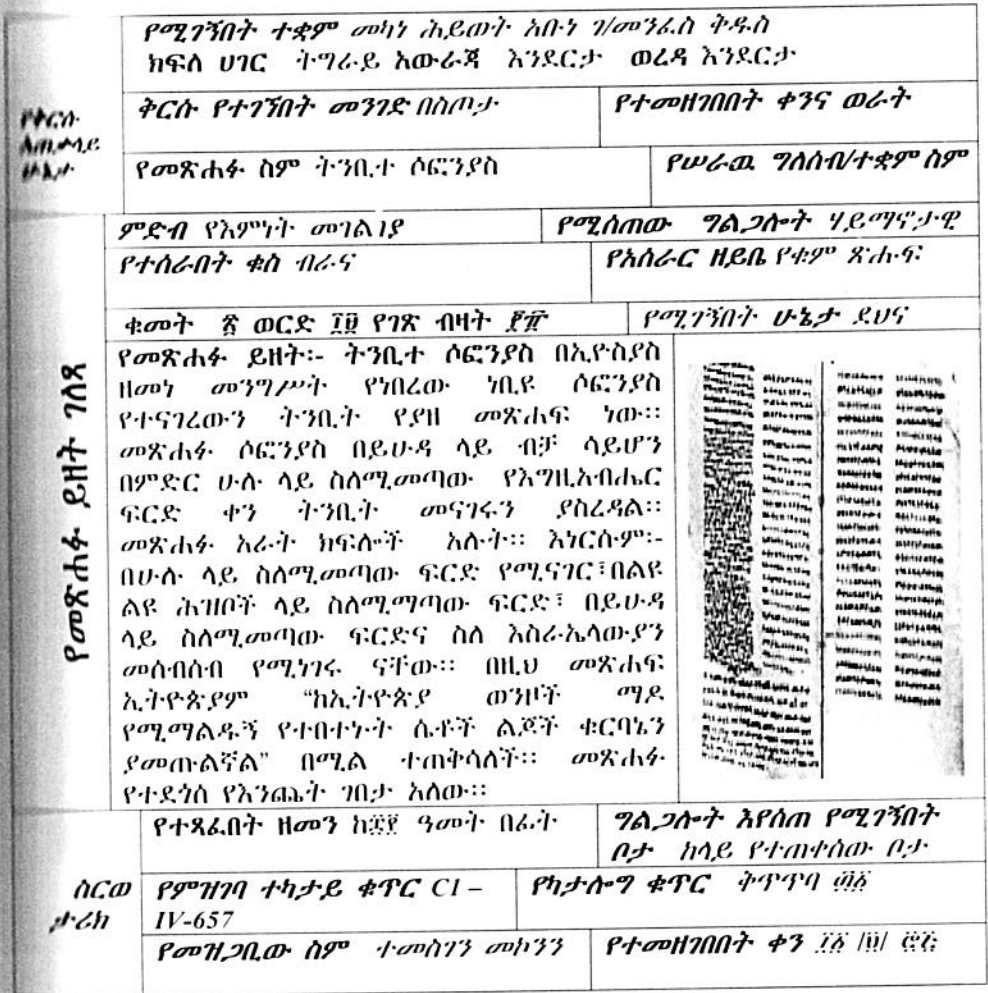 የሚገኝበት ተቋም መካነ ሕይወት አቡነ ገ/መንፈስ ቅዱስ
ክፍለ ሀገር ትግራይ አውራጃ እንደርታ ወረዳ እንደርታ
የቅርሱ
አጠቃላይ
ሁኔታ
ቅርሱ የተገኘበት መንገድ በስጦታ
የተመዘገበበት ቀንና ወራት
የመጽሐፉ ስም ትንቢተ ሶፎንያስ
የሠራዉ ግለሰብ/ተቋም ስም
ምድብ የእምነት መገልገያ
የሚሰጠው ግልጋሎት ሃይማኖታዊ
የተሰራበት ቁስ ብራና
የአሰራር ዘይቤ የቁም ጽሑፍ
ቁመት ወርድ የገጽ ብዛት
የሚገኝበት ሁኔታ ደህና
የመጽሐፉ ይዘት ገለጻ
የመጽሐፉ ይዘት፡- ትንቢተ ሶፎንያስ በኢዮስያስ
ዘመነ መንግሥት የነበረው ነቢዩ ሶፎንያስ
የተናገረውን ትንቢት የያዘ መጽሐፍ ነው።
መጽሐፉ ሶፎንያስ በይሁዳ ላይ ብቻ ሳይሆን
በምድር ሁሉ ላይ ስለሚመጣው የእግዚአብሔር
ፍርድ ቀን ትንቢት መናገሩን ያስረዳል።
መጽሐፉ አራት ክፍሎች አሉት። እነርሱም፡-
በሁሉ ላይ ስለሚመጣው ፍርድ የሚናገር፣በልዩ
ልዩ ሕዝቦች ላይ ስለሚማጣው ፍርድ፣ በይሁዳ
ላይ ስለሚመጣው ፍርድና ስለ እስራኤላውያን
መሰብሰብ የሚነገሩ ናቸው። በዚህ መጽሐፍ
ኢትዮጵያም “ከኢትዮጵያ ወንዞች ማዶ
የሚማልዱኝ የተበተኑት ሴቶች ልጆች ቁርባኔን
ያመጡልኛል” በሚል ተጠቅሳለች። መጽሐፉ
የተደጎሰ የእንጨት ገበታ አለው።
የተጻፈበት ዘመን ዓመት በፊት
ግልጋሎት እየሰጠ የሚገኝበት
ቦታ ከላይ የተጠቀሰው ቦታ
ስርወ
ታሪክ
የምዝገባ ተከታይ ቁጥር CI –
IV-657
የካታሎግ ቁጥር ቅጥጥባ
የመዝጋቢው ስም ተመስገን መኮንን
የተመዘገበበት ቀን